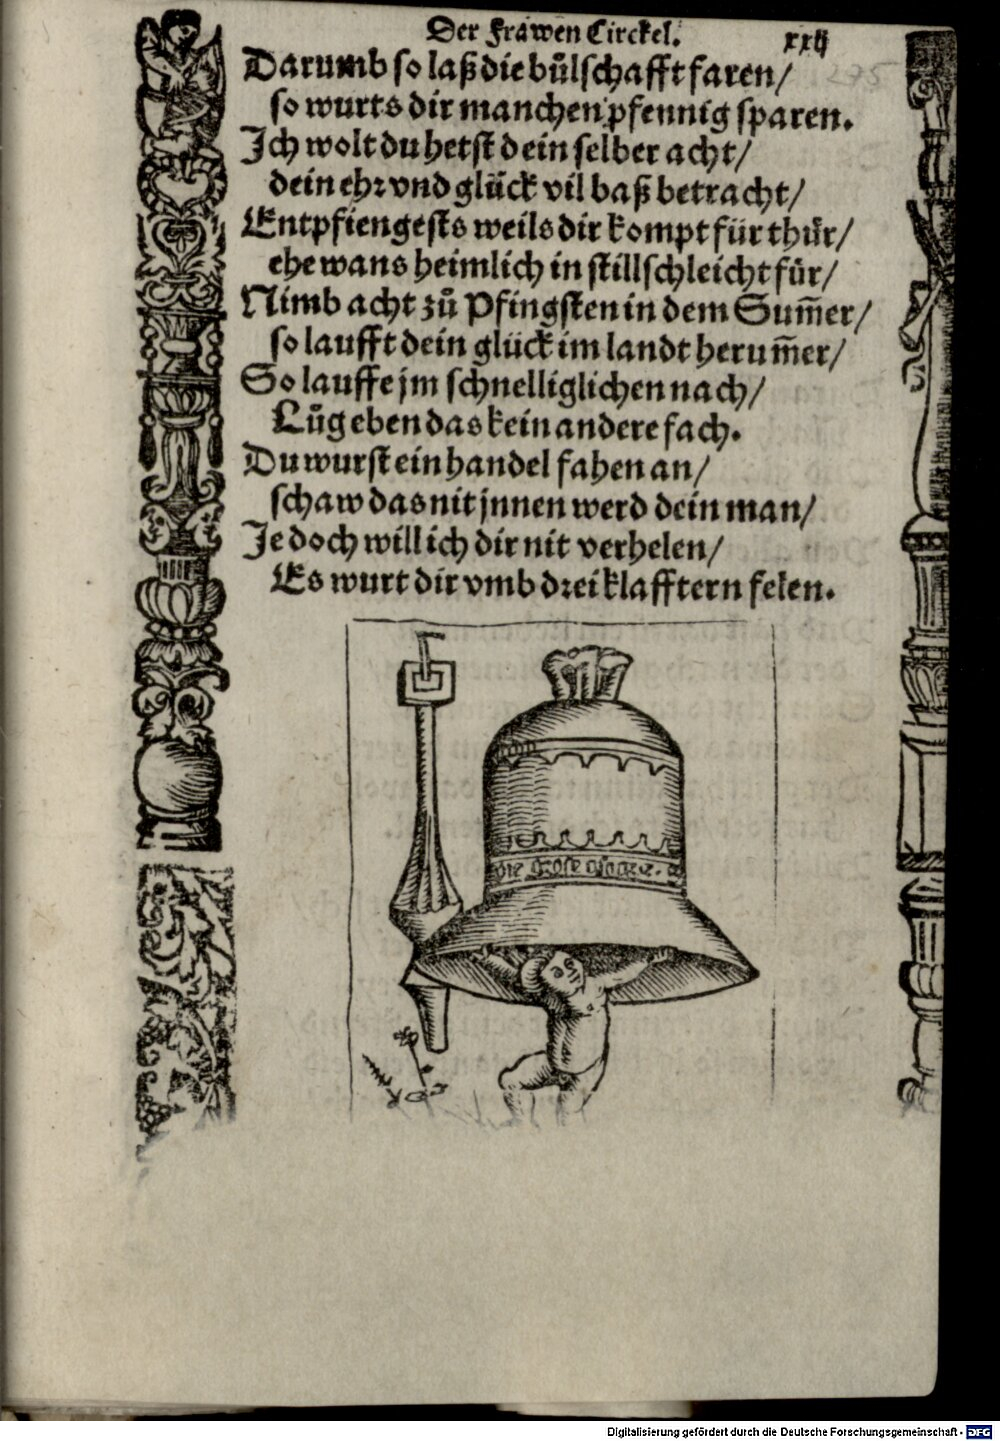 Der Frawen Circkel. xxij
Darumb so laß die bůlschafft faren/
so wurts dir manchen pfennig sparen.
Ich wolt du hetst dein selber acht/
dein ehr vnd glück vil baß betracht/
Entpfiengests weils dir kompt für thür/
ehe wans heimlich in still schleicht für/
Nimb acht zů Pfingsten in dem Sum̃er/
so laufft dein glück im landt herum̃er/
So lauffe jm schnelliglichen nach/
Lůg eben das kein andere fach.
Du wurst ein handel fahen an/
schaw das nit jnnen werd dein man/
Jedoch will ich dir nit verhelen/
Es wurt dir vmb drei klafftern felen.
die grose
Digitalisierung gefördert durch die Deutsche Forschungsgemeinschaft - DFG